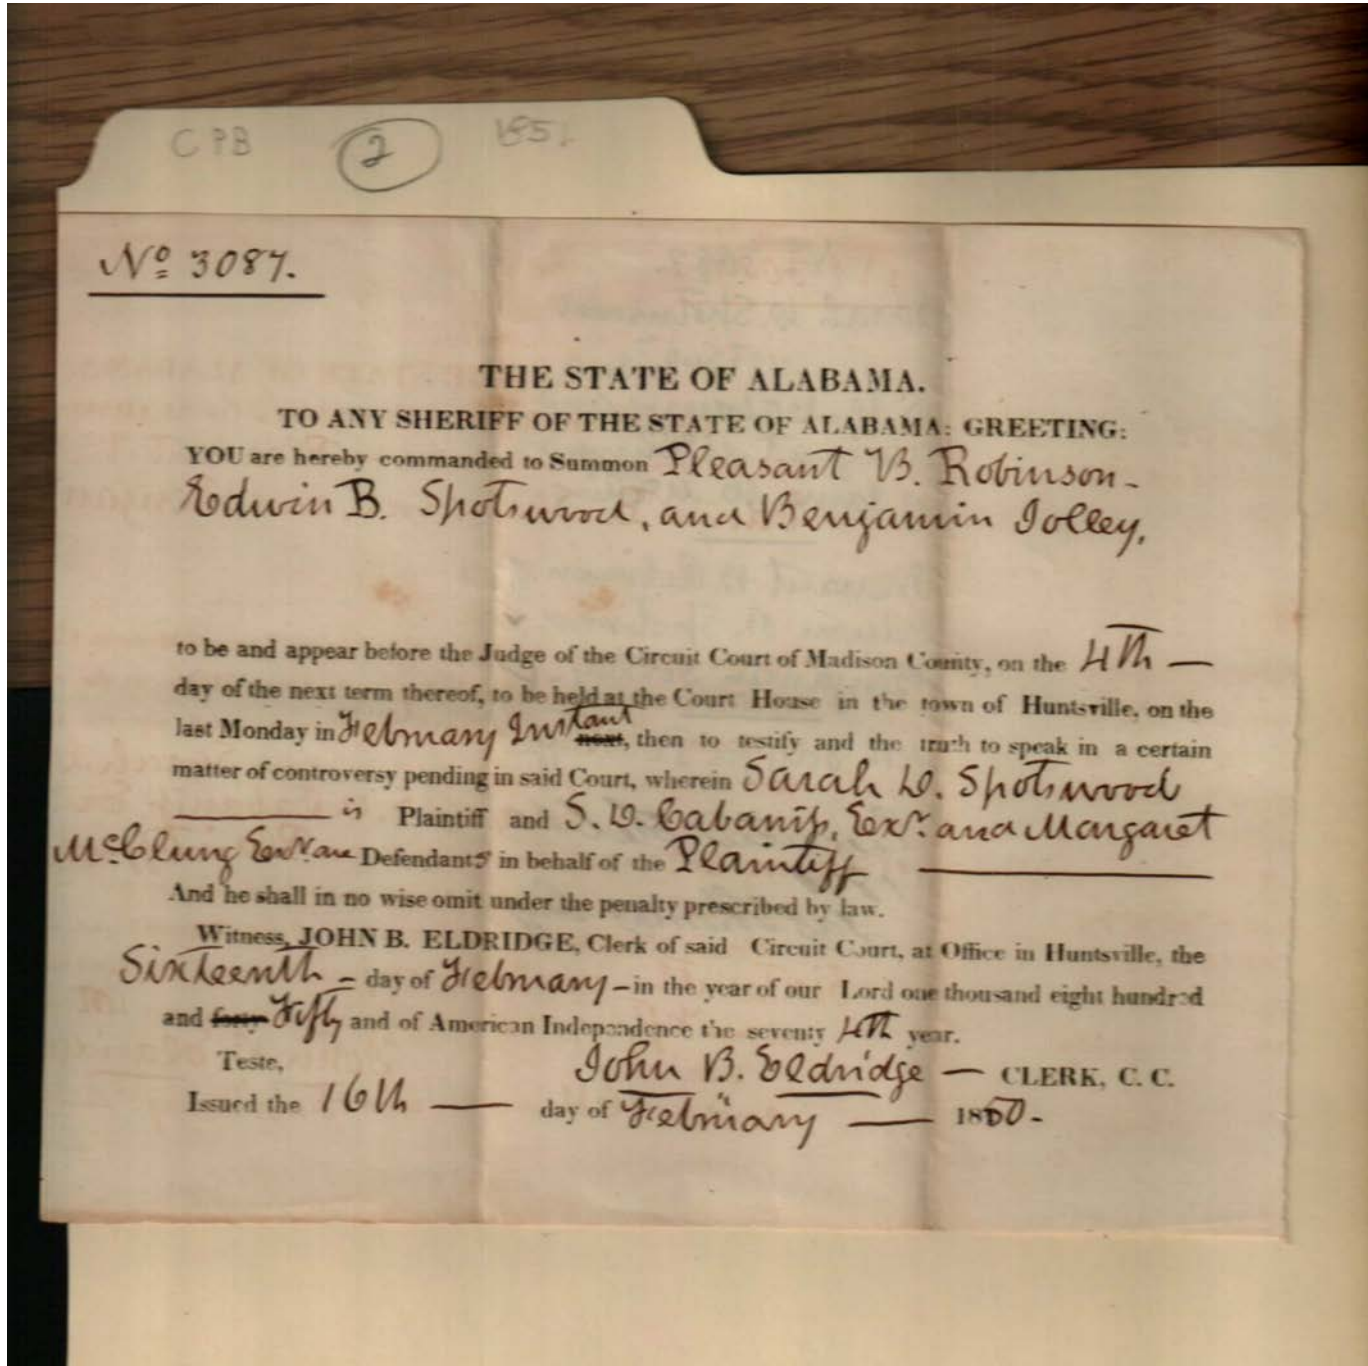 CPB 2 185
No 3087.
THE STATE OF ALABAMA.
TO ANY SHERIFF OF THE STATE OF ALABAMA: GREETING:
YOU are hereby commanded to Summon Pleasant B. Robinson-
Edwin B. Spotswood, and Benjamin Jolley,
to be and appear before the Judge of the Circuit Court of Madison County, on the 4th —
day of the next term thereof, to be held at the Court House in the town of Huntsville, on the
last Monday in February Instant next, then to testify and the truth to speak in a certain
matter of controversy pending in said Court, wherein Sarah D. Spotswood
is Plaintiff and S. D. Cabaniss, Exr. and Margaret
McClung Exx. are Defendants in behalf of the Plaintiff
And he shall in no wise omit under the penalty prescribed by law.
Witness, JOHN B. ELDRIDGE, Clerk of said Circuit Court, at Office in Huntsville, the
Sixteenth - day of February - in the year of our Lord one thousand eight hundred
and forty Fifty and of American Independence the seventy 4th year.
Teste, John B. Eldridge — CLERK, C. C.
Issued the 16th — day of February — 1850.-